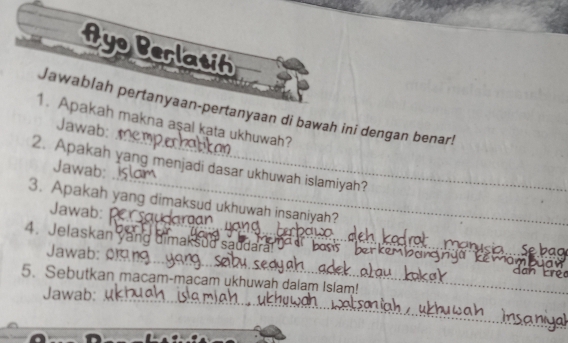 Ayo Berlatih
Jawablah pertanyaan-pertanyaan di bawah ini dengan benar!
1. Apakah makna asal kata ukhuwah?
Jawab: memperhatikan
2. Apakah yang menjadi dasar ukhuwah islamiyah?
Jawab: Islam
3. Apakah yang dimaksud ukhuwah insaniyah?
Jawab: persaudaraan yang berbawa deh kodrat manusia sebaga
berfikir yang menjadi basis berkembangnya kemampuan
dan krea
4. Jelaskan yang dimaksud saudara!
Jawab: orang yang seibu seayah adek atau kakak
5. Sebutkan macam-macam ukhuwah dalam Islam!
Jawab: ukhuah islamiah, ukhuwah watsaniah, ukhuwah insaniyah